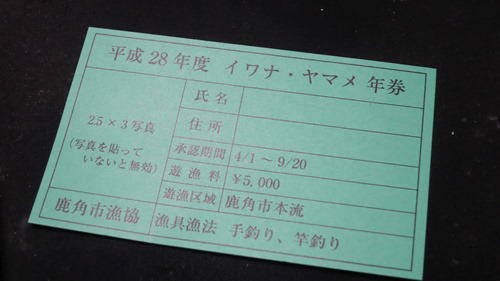 平成 28 年度 イワナ・ヤマメ 年券
2.5 × 3 写真
(写真を貼って
いないと無効)
氏 名
住 所
承認期間 4/1 ～ 9/20
遊 漁 料 ¥5,000
遊漁区域 鹿角市本流
鹿角市漁協 漁具漁法 手釣り、竿釣り